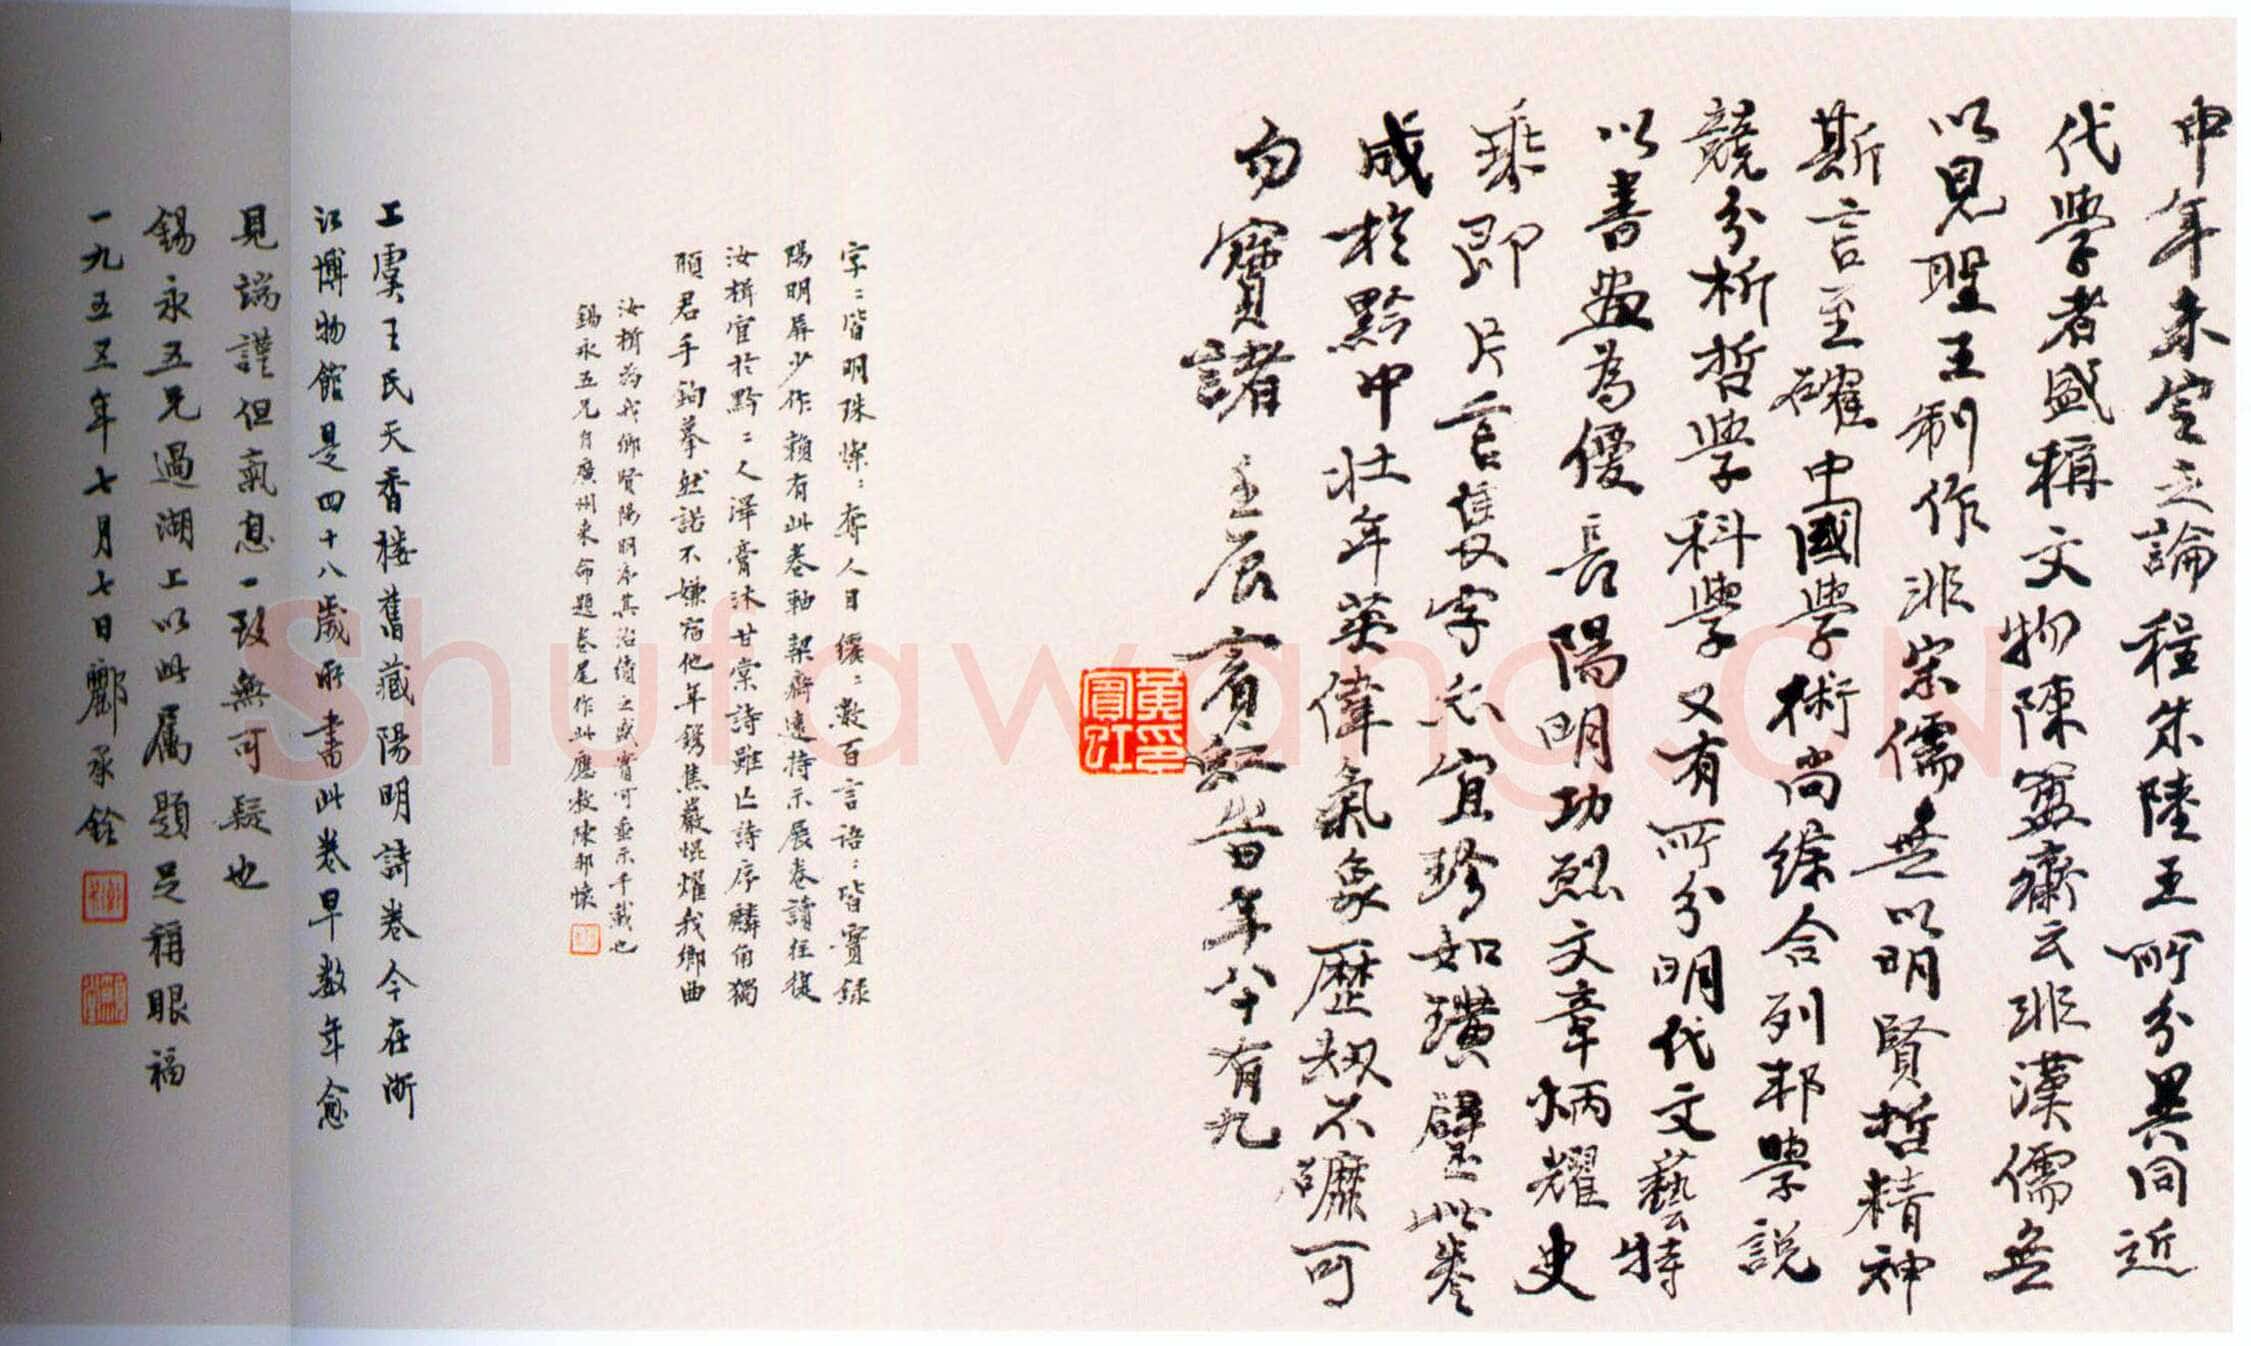 中年未定之論程朱陸王所分異同近
代學者盛稱文物陳簠齋云非漢儒無
以見聖王制作非宋儒無以明賢哲精神
斯言至確中國學術尚綜合列邦學說
競分析哲學科學又有所分明代文藝特
以書畫為優長陽明功烈文章炳耀史
乘即片言隻字亦宜珍如璜璧此卷
成於黔中壯年英偉氣象歷劫不磨可
勿寶諸 壬辰賓虹年八十有九
黃賓虹印
字〻皆明珠燦〻奪人目纚〻數百言語〻皆實錄
陽明屏少作賴有此卷軸絜齋遠持示展卷讀往復
汝楫宦於黔〻人澤膏沐甘棠詩雖亡詩序麟角獨
願君手鉤摹然諾不嫌宿他年鐫焦巖焜燿我鄉曲
汝楫為我鄉賢陽明序其治績之盛實可垂示千載也
錫永五兄自廣州來命題卷尾作此應教陳邦懷
上虞王氏天香樓舊藏陽明詩卷今在浙
江博物館是四十八歲所書此卷早數年愈
見端謹但氣息一致無可疑也
錫永五兄過湖上以此屬題足稱眼福
一九五五年七月七日酈承銓
Shufawang.CN